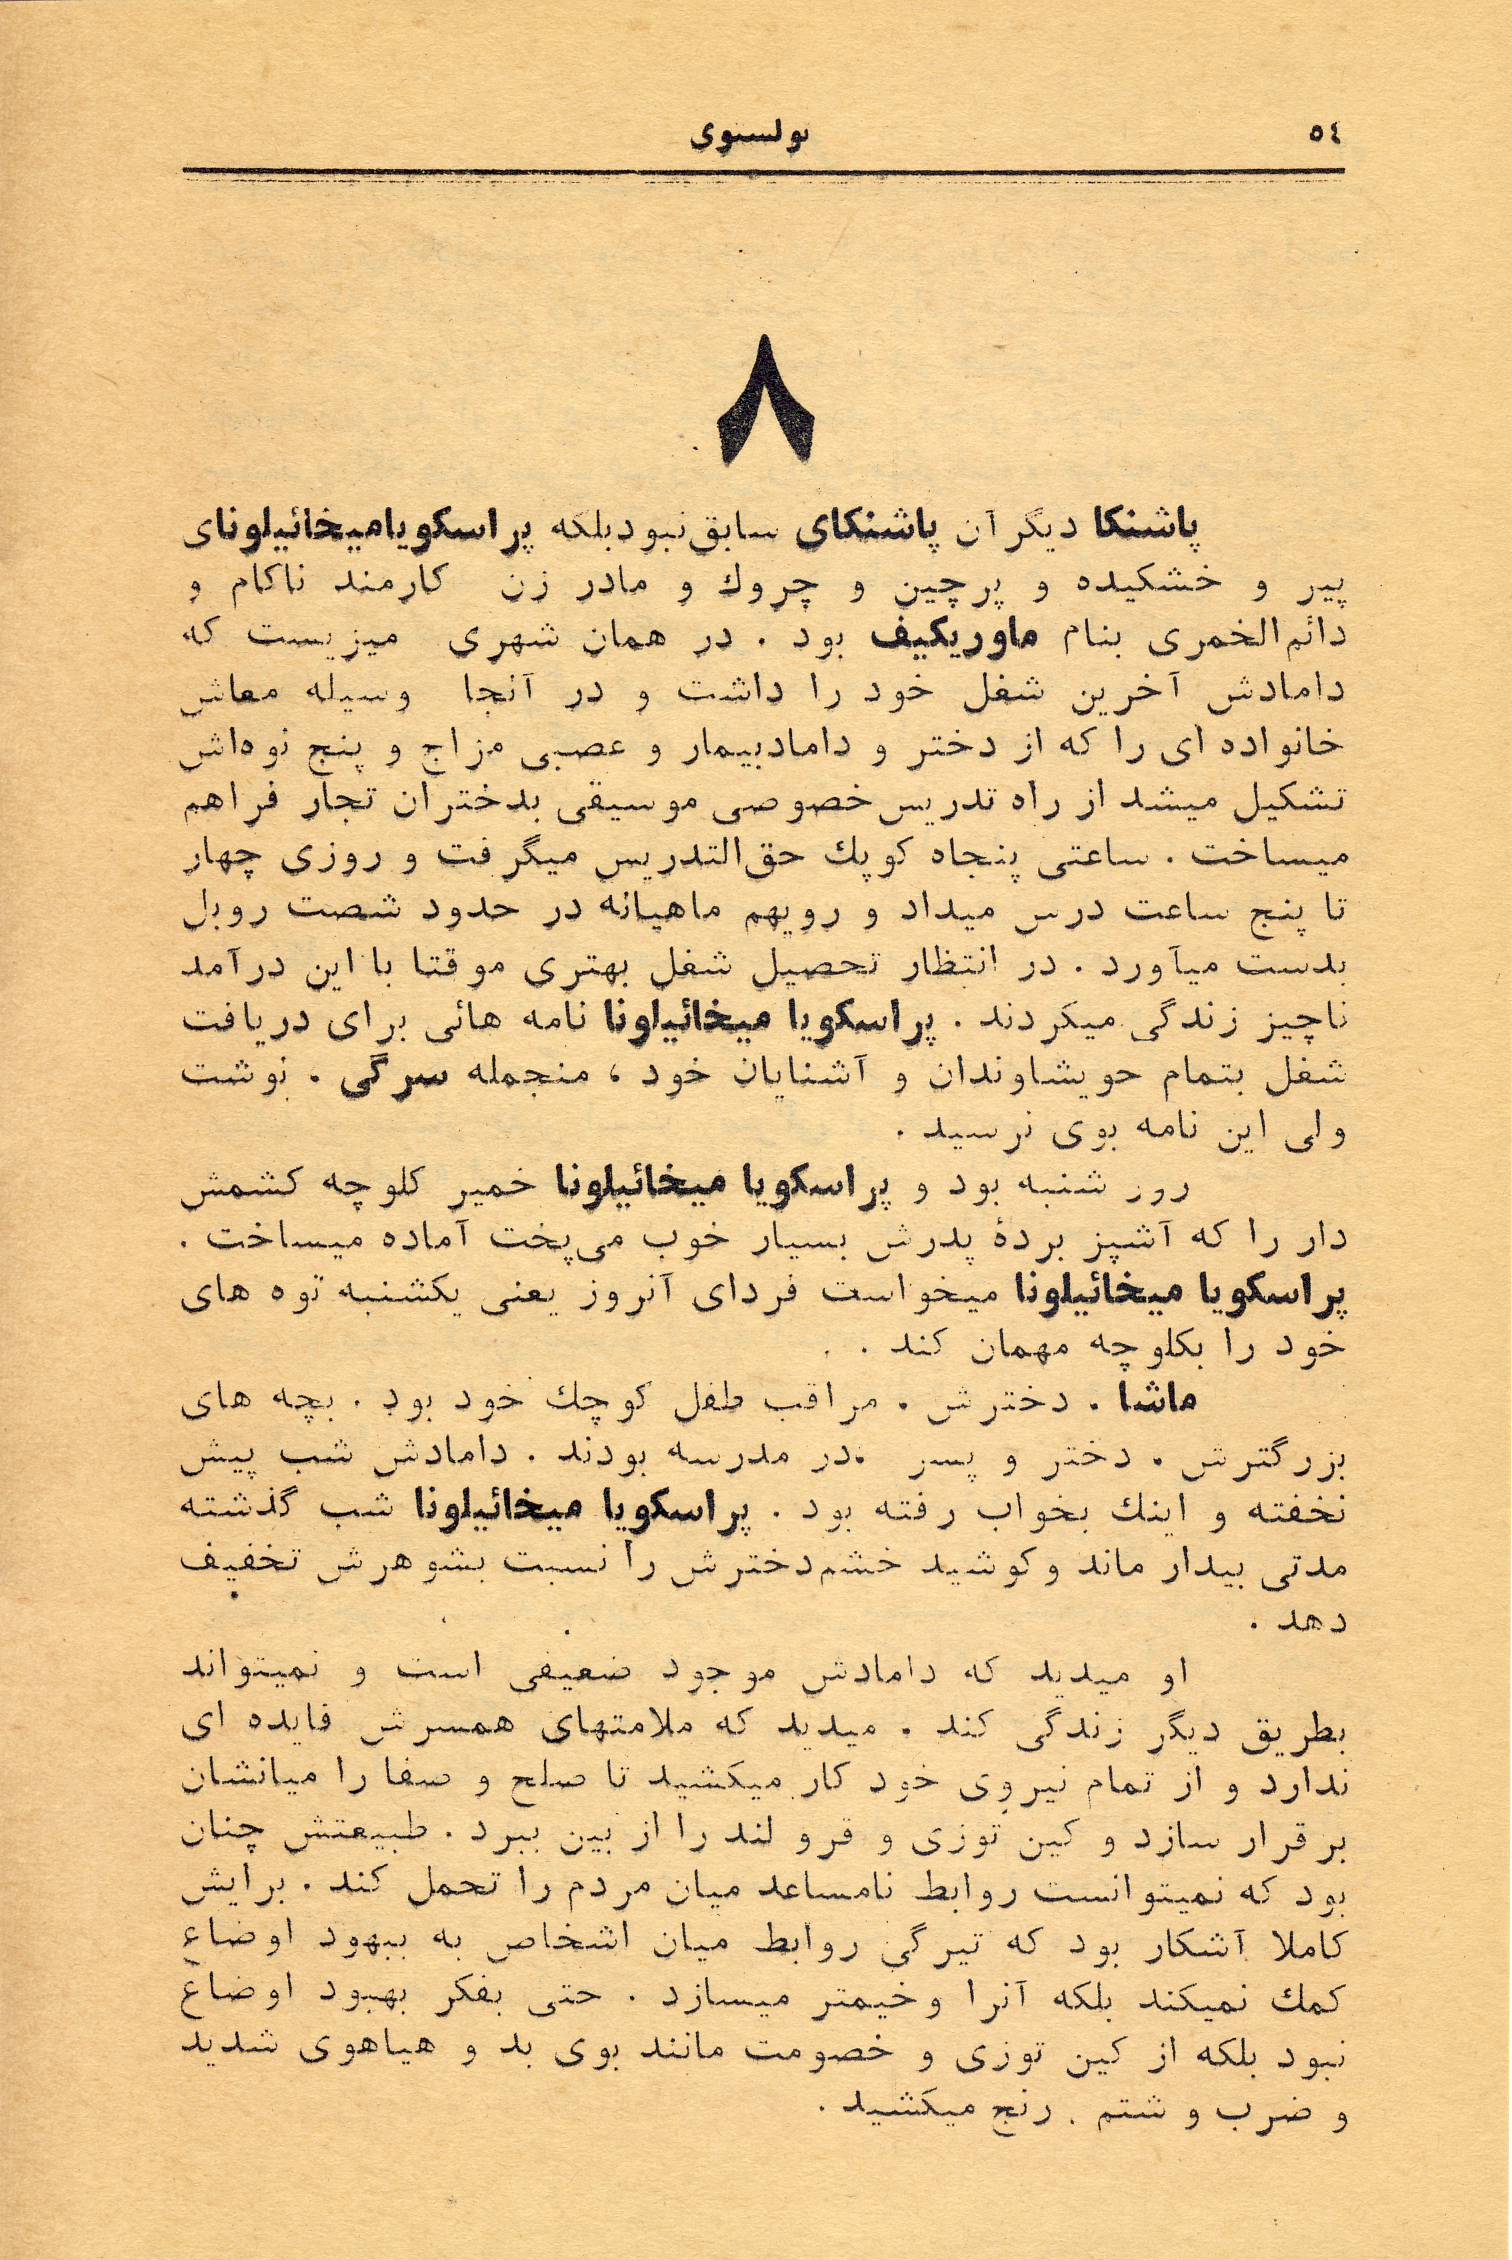 ٥٤
تولستوی
۸
پاشنکا دیگر آن پاشنکای سابق نبود بلکه پراسکویا میخائیلونای
پیر و خشکیده و پرچین و چروك و مادر زن کارمند ناکام و
دائم‌الخمری بنام ماوریکیف بود . در همان شهری میزیست که
دامادش آخرین شغل خود را داشت و در آنجا وسیله معاش
خانواده ای را که از دختر و داماد بیمار و عصبی مزاج و پنج نوه‌اش
تشکیل میشد از راه تدریس خصوصی موسیقی بدختران تجار فراهم
میساخت . ساعتی پنجاه کوپك حق‌التدریس میگرفت و روزی چهار
تا پنج ساعت درس میداد و رویهم ماهیانه در حدود شصت روبل
بدست میآورد . در انتظار تحصیل شغل بهتری موقتا با این درآمد
ناچیز زندگی میکردند . پراسکویا میخائیلونا نامه هائی برای دریافت
شغل بتمام حویشاوندان و آشنایان خود ، منجمله سرگی . نوشت
ولی این نامه بوی نرسید .
روز شنبه بود و پراسکویا میخائیلونا خمیر کلوچه کشمش
دار را که آشپز بردهٔ پدرش بسیار خوب می‌پخت آماده میساخت .
پراسکویا میخائیلونا میخواست فردای آنروز یعنی یکشنبه توه های
خود را بکلوچه مهمان کند .
ماشا . دخترش . مراقب طفل کوچك خود بود . بچه های
بزرگترش . دختر و پسر . در مدرسه بودند . دامادش شب پیش
نخفته و اینك بخواب رفته بود . پراسکویا میخائیلونا شب گذشته
مدتی بیدار ماند و کوشید خشم دخترش را نسبت بشوهرش تخفیف
دهد .
او میدید که دامادش موجود ضعیفی است و نمیتواند
بطریق دیگر زندگی کند . میدید که ملامتهای همسرش فایده ای
ندارد و از تمام نیروی خود کار میکشید تا صلح و صفا را میانشان
برقرار سازد و کین توزی و قرو لند را از بین ببرد . طبیعتش چنان
بود که نمیتوانست روابط نامساعد میان مردم را تحمل کند . برایش
کاملا آشکار بود که تیرگی روابط میان اشخاص به ببهود اوضاع
کمك نمیکند بلکه آنرا وخیمتر میسازد . حتی بفکر بهبود اوضاع
نبود بلکه از کین توزی و خصومت مانند بوی بد و هیاهوی شدید
و ضرب و شتم . رنج میکشید .